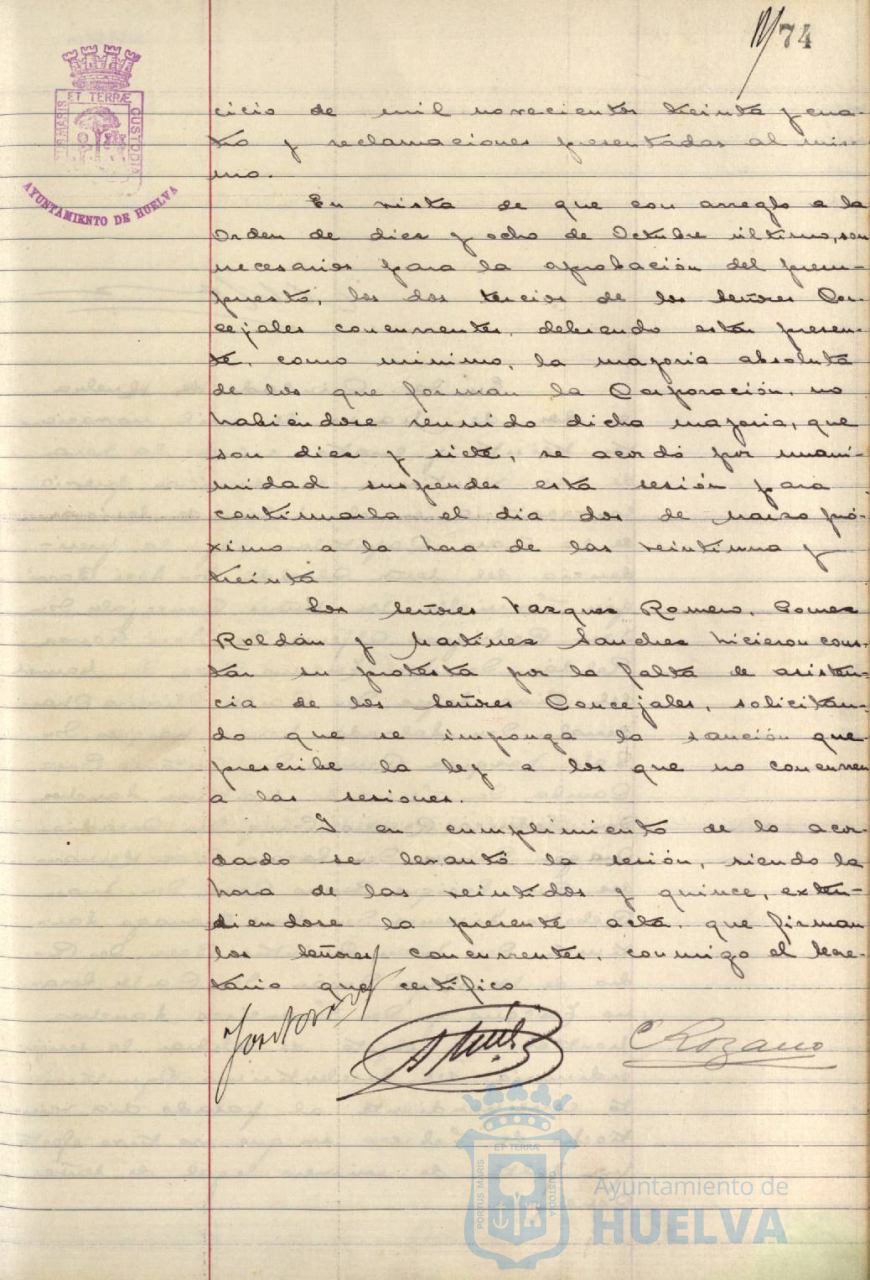 74
ET TERRÆ
CUSTODIA
AYUNTAMIENTO DE HUELVA
cicio de mil novecientos treinta y cua-
tro y reclamaciones presentadas al mis-
mo.
En vista de que con arreglo a la
Orden de diez y ocho de Octubre último, son
necesarios para la aprobación del presu-
puesto, los dos tercios de los señores Con-
cejales concurrentes, debiendo estar presen-
te, como minimo, la mayoria absoluta
de los que forman la Corporación, no
habiéndose reunido dicha mayoria, que
son diez y siete, se acordó por unani-
midad suspender esta sesión para
continuarla el dia dos de marzo pró-
ximo a la hora de las veintiuna y
treinta
Los señores Vazquez Romero, Gomez
Roldán y Martinez Sanchez hicieron cons-
tar su protesta por la falta de asisten-
cia de los señores Concejales, solicitan-
do que se imponga la sanción que
prescribe la ley a los que no concurren
a las sesiones.
Y en cumplimiento de lo acor-
dado se levantó la sesión, siendo la
hora de las veintidos y quince, exten-
diendose la presente acta, que firman
los señores concurrentes, conmigo el Secre-
tario que certifico
C Rozano
ET TERRÆ
PORTUS MARIS
CUSTODIA
Ayuntamiento de
HUELVA